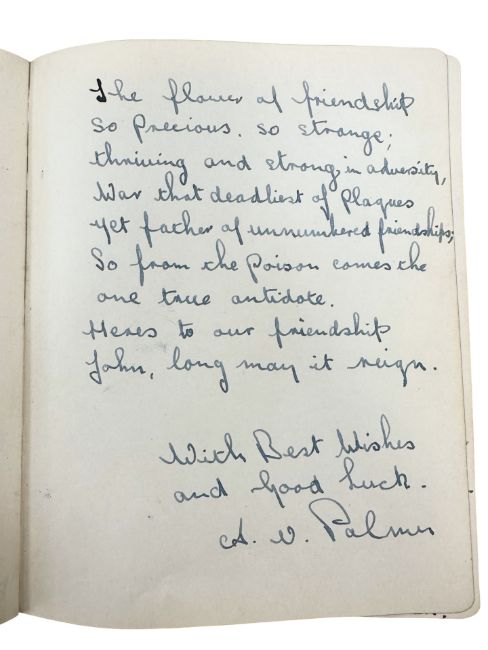 The flower of friendship
So Precious. so strange;
thriving and strong in adversity,
War that deadliest of Plagues
yet father of unnumbered friendships;
So from the Poison comes the
one true antidote.
Heres to our friendship
John, long may it reign.
With Best Wishes
and Good Luck.
A. V. Palmer